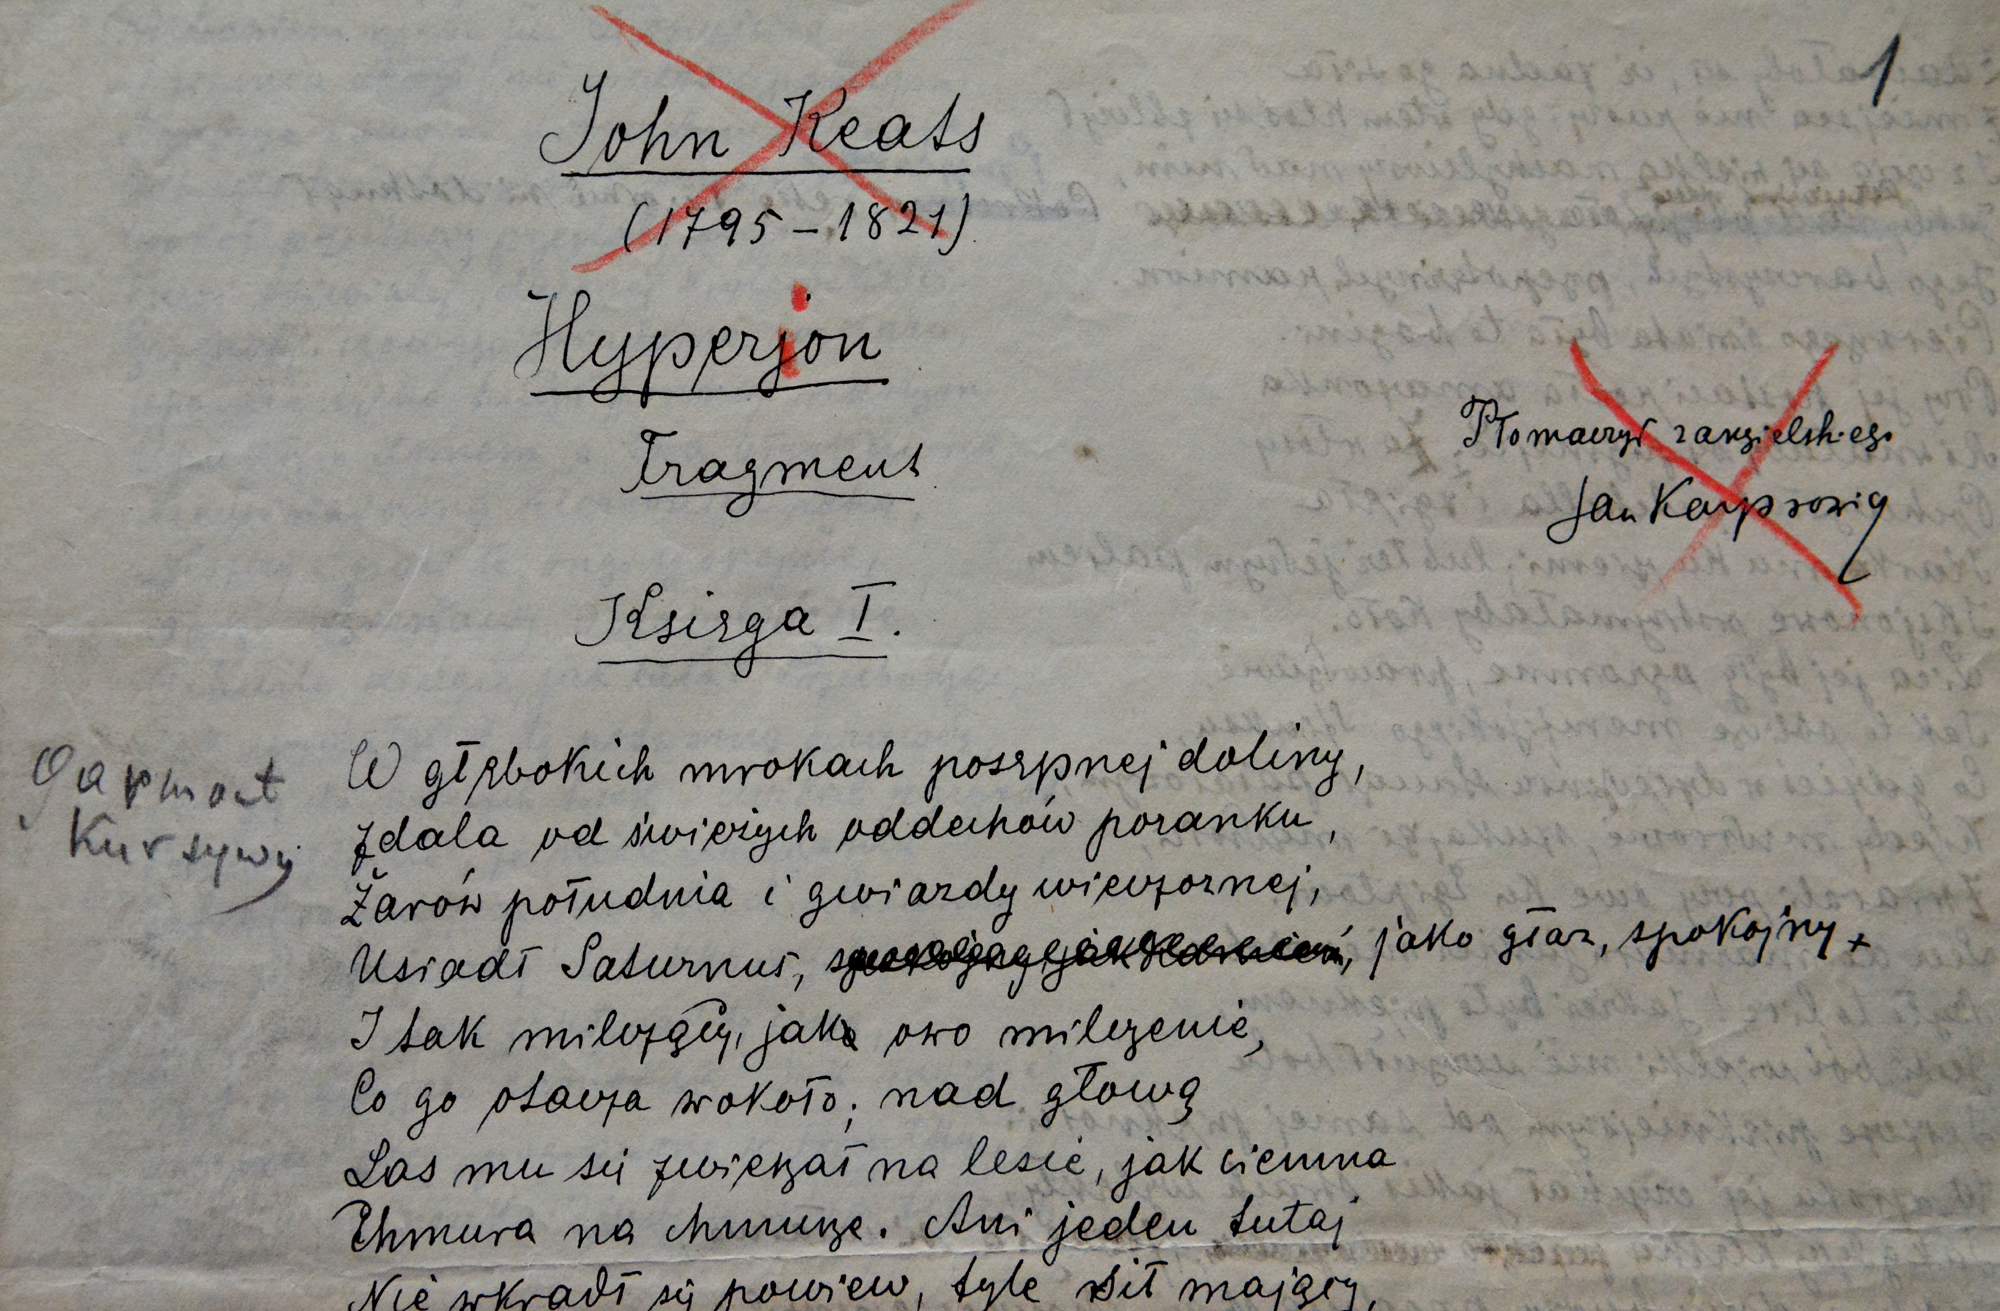 1
John Keats
(1795–1821)
Hyperjon
Fragment
Tłomaczył z angielskiego
Jan Kasprowicz
Księga I.
Garmont
Kursywy
W głębokich mrokach posępnej doliny,
Zdala od świeżych oddechów poranku,
Żarów południa i gwiazdy wieczornej,
Usiadł Saturnus, jako głaz, spokojny
I tak milczący, jak owo milczenie,
Co go otacza wokoło; nad głową
Las mu się zwieszał na lesie, jak ciemna
Chmura na chmurze. Ani jeden tutaj
Nie wkradł się powiew, tyle sił mający,